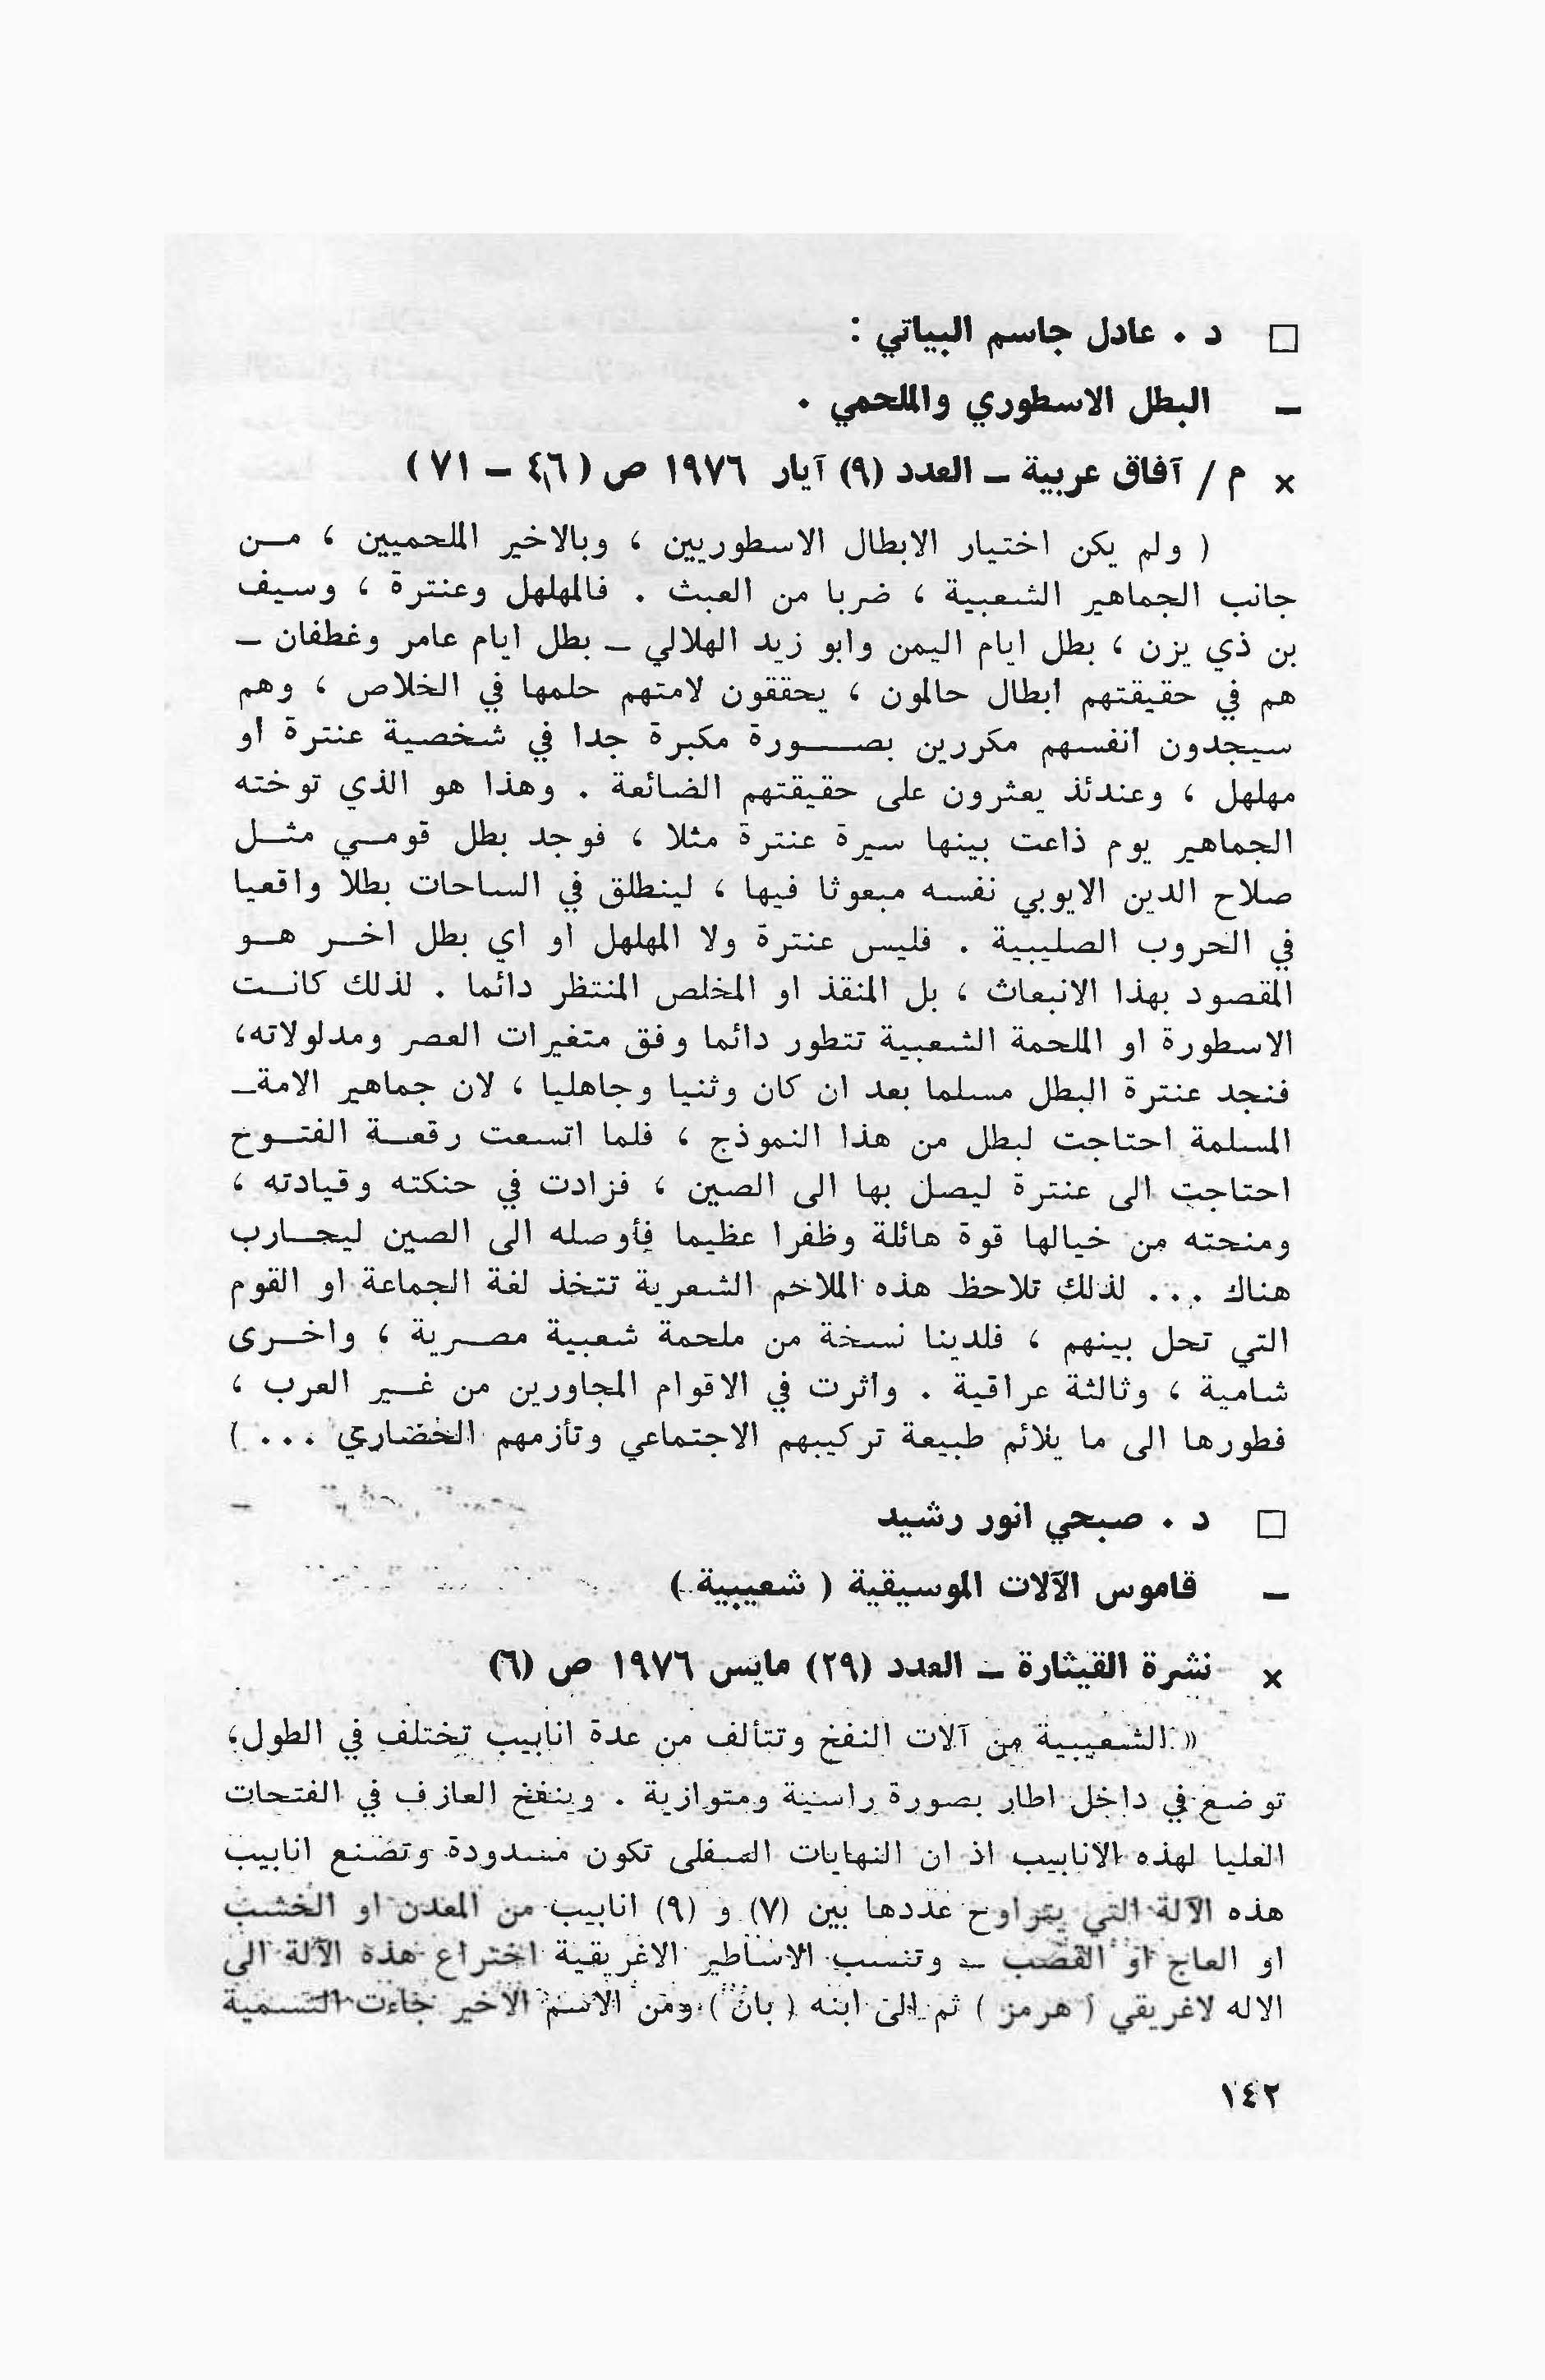 □ د . عادل جاسم البياتي :
– البطل الاسطوري والملحمي .
× م / آفاق عربية – العدد (٩) آيار ١٩٧٦ ص ( ٤٦ – ٧١ )
( ولم يكن اختيار الابطال الاسطوريين ، وبالاخير الملحميين ، مـن
جانب الجماهير الشعبية ، ضربا من العبث . فالمهلهل وعنترة ، وسيف
بن ذي يزن ، بطل ايام اليمن وابو زيد الهلالي – بطل ايام عامر وغطفان –
هم في حقيقتهم ابطال حالمون ، يحققون لامتهم حلمها في الخلاص ، وهم
سيجدون انفسهم مكررين بصـــورة مكبرة جدا في شخصية عنترة او
مهلهل ، وعندئذ يعثرون على حقيقتهم الضائعة . وهذا هو الذي توخته
الجماهير يوم ذاعت بينها سيرة عنترة مثلا ، فوجد بطل قومـي مثـل
صلاح الدين الايوبي نفسه مبعوثا فيها ، لينطلق في الساحات بطلا واقعيا
في الحروب الصليبية . فليس عنترة ولا المهلهل او اي بطل اخـر هـو
المقصود بهذا الانبعاث ، بل المنقذ او المخلص المنتظر دائما . لذلك كانـت
الاسطورة او الملحمة الشعبية تتطور دائما وفق متغيرات العصر ومدلولاته،
فنجد عنترة البطل مسلما بعد ان كان وثنيا وجاهليا ، لان جماهير الامة–
المسلمة احتاجت لبطل من هذا النموذج ، فلما اتسعت رقعـة الفتـوح
احتاجت الى عنترة ليصل بها الى الصين ، فزادت في حنكته وقيادته ،
ومنحته من خيالها قوة هائلة وظفرا عظيما فأوصله الى الصين ليحـارب
هناك ... لذلك تلاحظ هذه الملاحم الشعرية تتخذ لغة الجماعة او القوم
التي تحل بينهم ، فلدينا نسخة من ملحمة شعبية مصـرية ، واخـرى
شامية ، وثالثة عراقية . واثرت في الاقوام المجاورين من غـير العرب ،
فطورها الى ما يلائم طبيعة تركيبهم الاجتماعي وتأزمهم الحضاري ... )
□ د . صبحي انور رشيد
– قاموس الآلات الموسيقية ( شعيبية )
× نشرة القيثارة – العدد (٢٩) مايس ١٩٧٦ ص (٦)
« الشعيبية من آلات النفخ وتتألف من عدة انابيب تختلف في الطول،
توضع في داخل اطار بصورة راسية ومتوازية . وينفخ العازف في الفتحات
العليا لهذه الانابيب اذ ان النهايات السفلى تكون مسدودة وتصنع انابيب
هذه الآلة التي يتراوح عددها بين (٧) و (٩) انابيب من المعدن او الخشب
او العاج او القصب – وتنسب الاساطير الاغريقية اختراع هذه الآلة الى
الاله لاغريقي ( هرمز ) ثم الى ابنه ( بان ) ومن الاسم الاخير جاءت التسمية
١٤٢